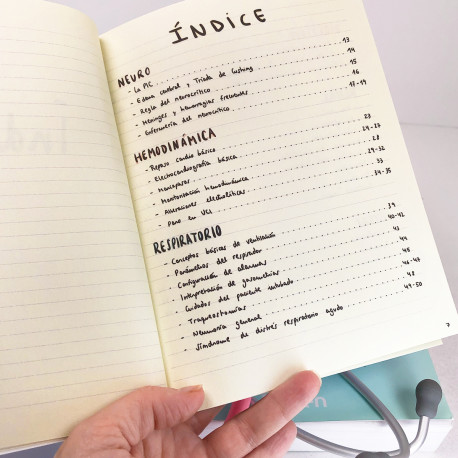 ÍNDICE
NEURO
- La PIC 13
- Edema cerebral y Triada de Cushing 14
- Regla del neurocrítico 15
- Meninges y hemorragias frecuentes 16
- Enfermería del neurocrítico 17-19
HEMODINÁMICA
- Repaso cardio básico 23
- Electrocardiografía básica 24-27
- Marcapasos 28
- Monitorización hemodinámica 29-32
- Alteraciones electrolíticas 33
- Paro en UCI 34-35
RESPIRATORIO
- Conceptos básicos de ventilación 39
- Parámetros del respirador 40-42
- Configuración de alarmas 43
- Interpretación de gasometrías 44
- Cuidados del paciente intubado 45
- Traqueostomías 46-47
- Neumonía general 48
- Síndrome de distrés respiratorio agudo 49-50
7